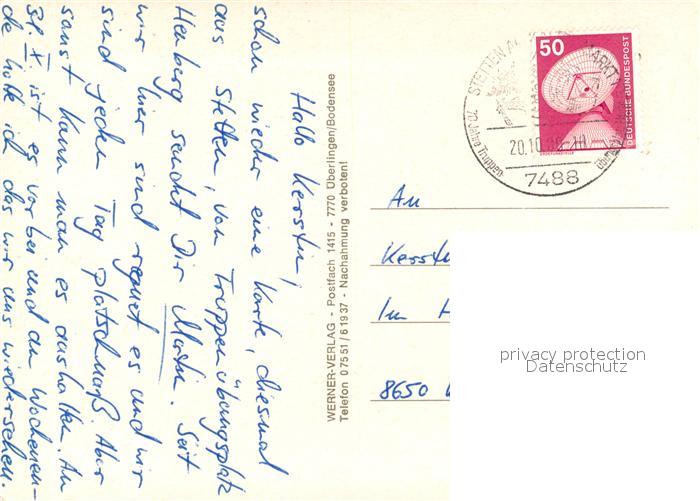 Hallo Kerstin,
schon wieder eine Karte, diesmal
aus Stetten, vom Truppenübungsplatz
Heuberg sendet Dir Martin. Seit
wir hier sind regnet es und wir
sind jeden Tag platschnaß. Aber
sonst kann man es aushalten. Am
31. X ist es vorbei und am Wochenen-
de hoffe ich das wir uns wiedersehen.
WERNER-VERLAG - Postfach 1415 - 7770 Überlingen/Bodensee
Telefon 07551/61937 - Nachahmung verboten!
STETTEN A
70 Jahre Truppen-
übun
20.10.
7488
50
DEUTSCHE BUNDESPOST
An
Kerstin
Im H
8650
privacy protection
Datenschutz